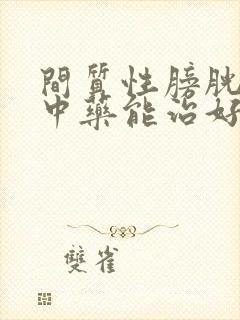 間質性膀胱
中藥能治好
雙雀